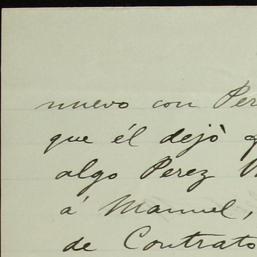 nuevo con Per
que él dejò q
algo Perez
á Manuel,
de Contrato